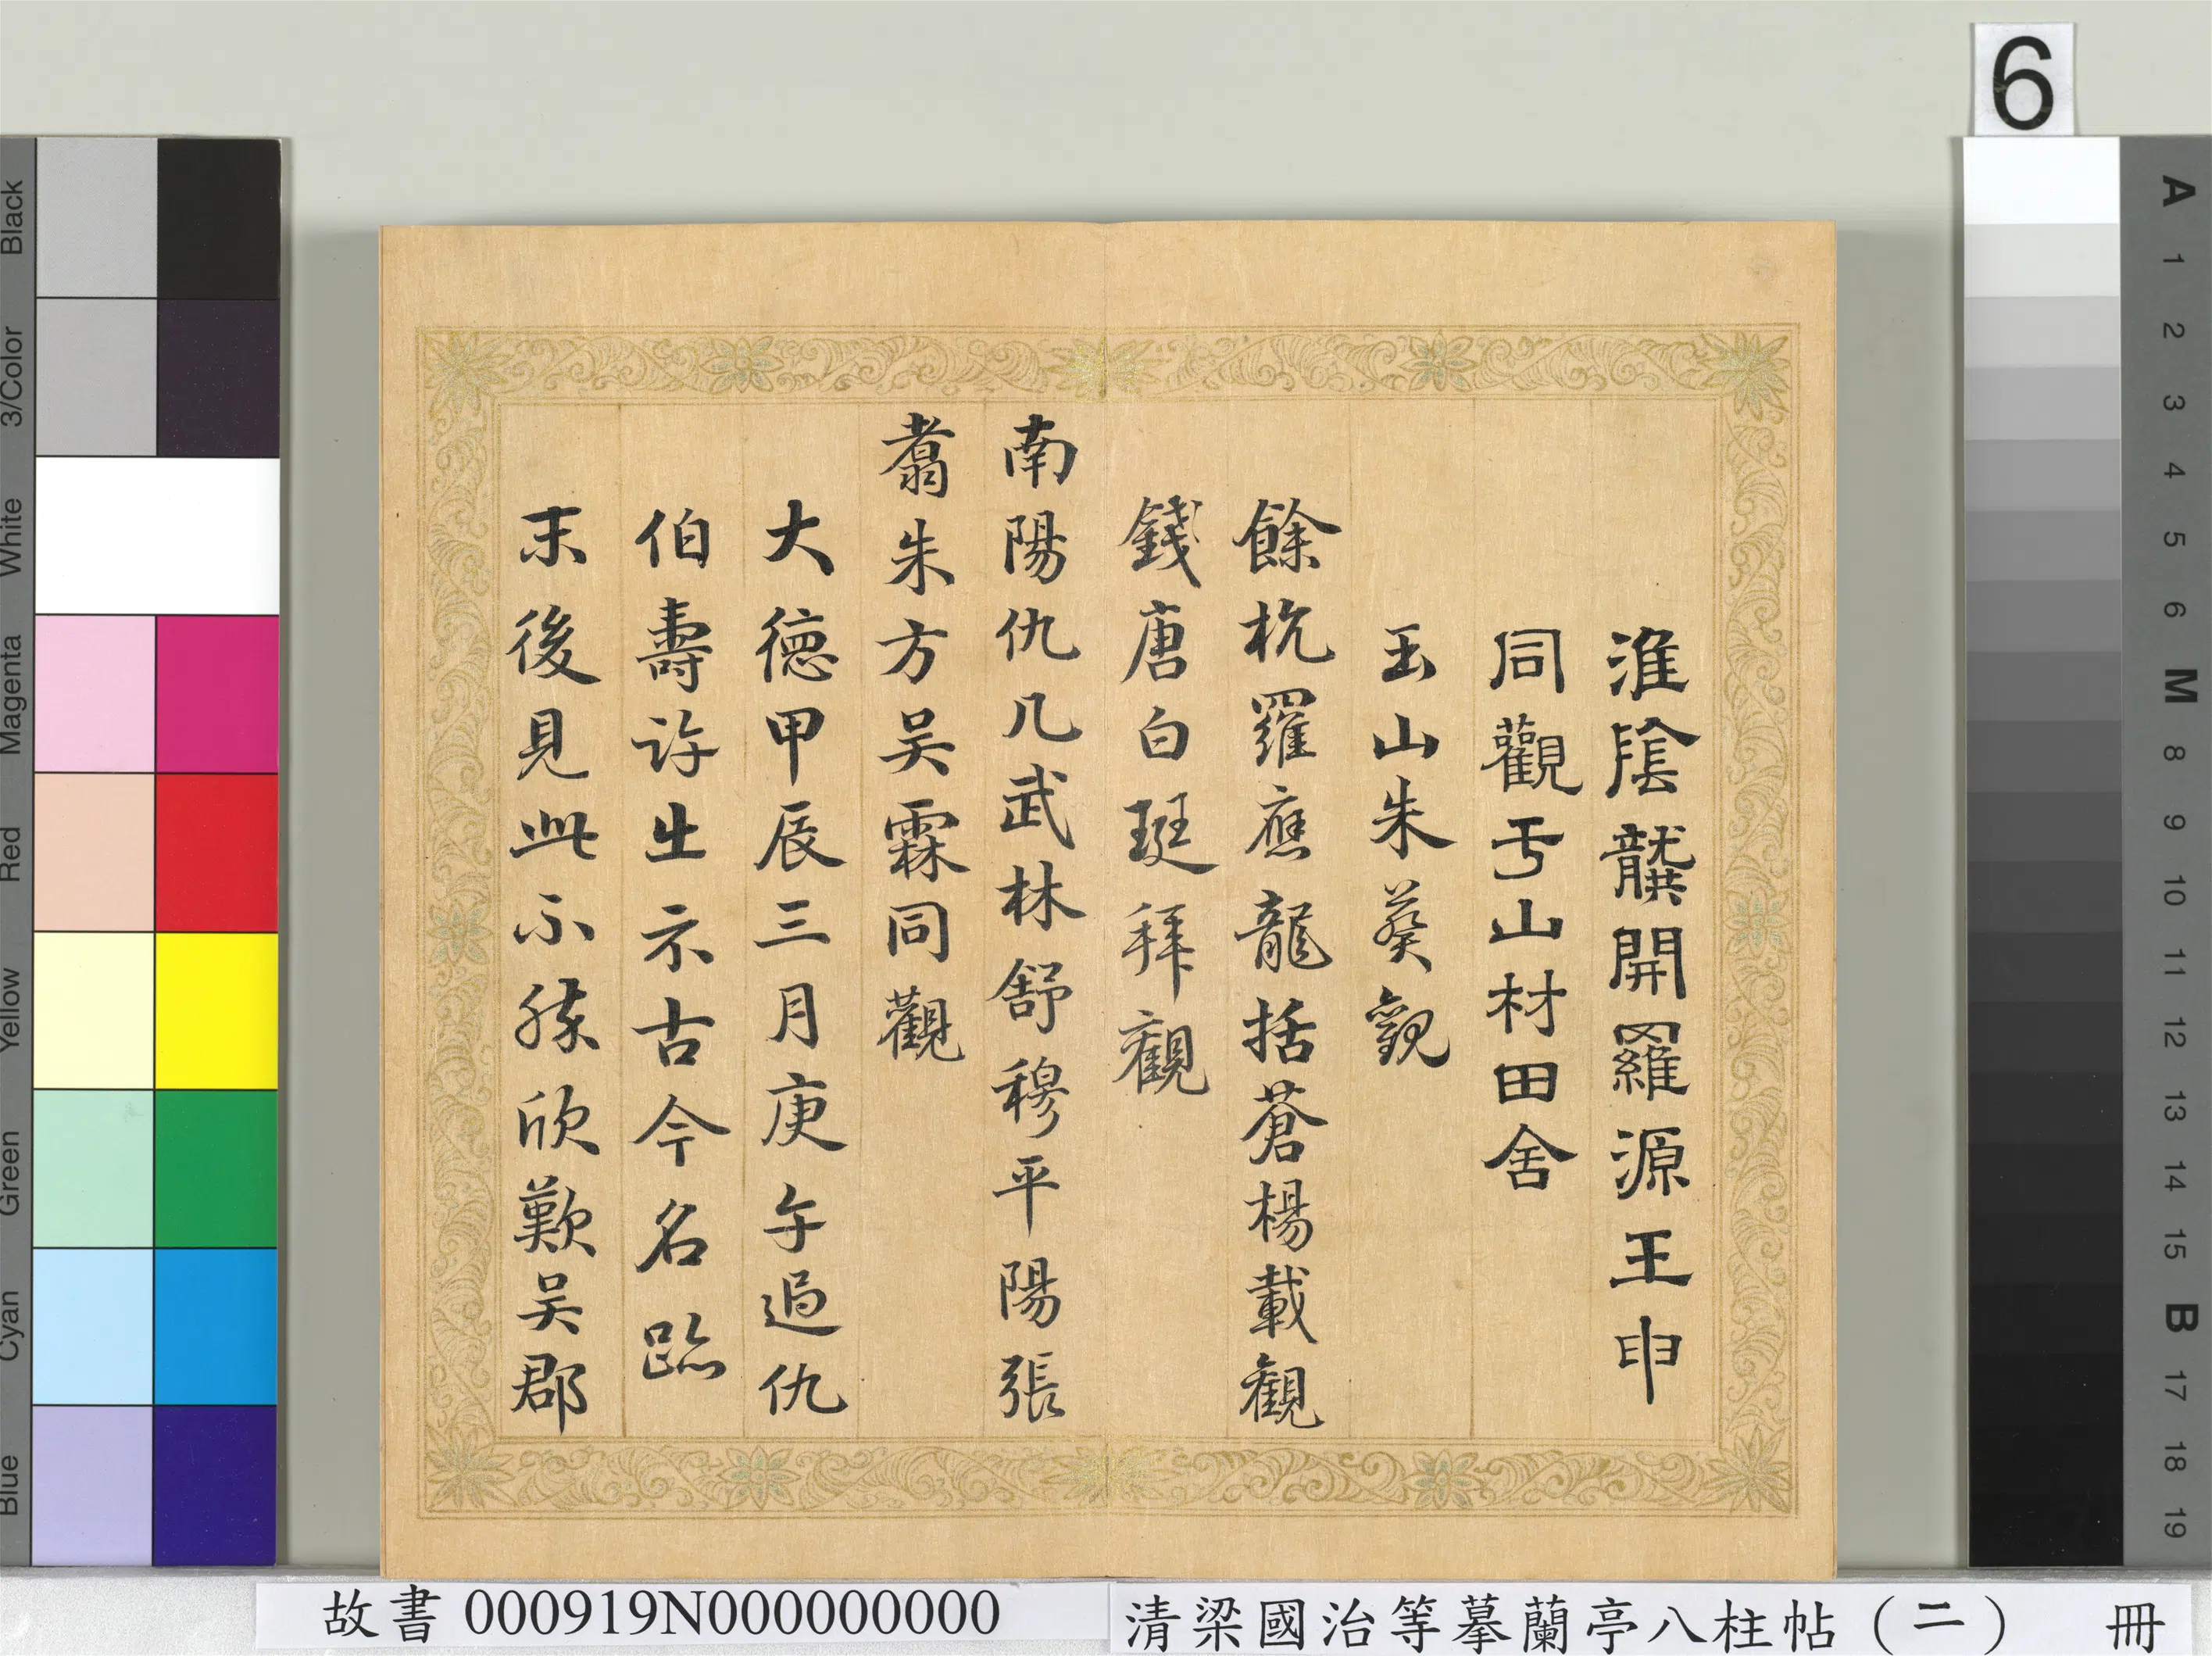 淮陰龔開羅源王申
同觀于山村田舍
玉山朱葵觀
餘杭羅應龍括蒼楊載觀
錢唐白珽拜觀
南陽仇几武林舒穆平陽張
翥朱方吴霖同觀
大德甲辰三月庚午過仇
伯壽許出示古今名跡
末後見此不勝欣歎吴郡
6
Black
3/Color
White
Magenta
Red
Yellow
Green
Cyan
Blue
A
1
2
3
4
5
6
M
8
9
10
11
12
13
14
15
B
17
18
19
故書 000919N000000000
清梁國治等摹蘭亭八柱帖（二） 冊